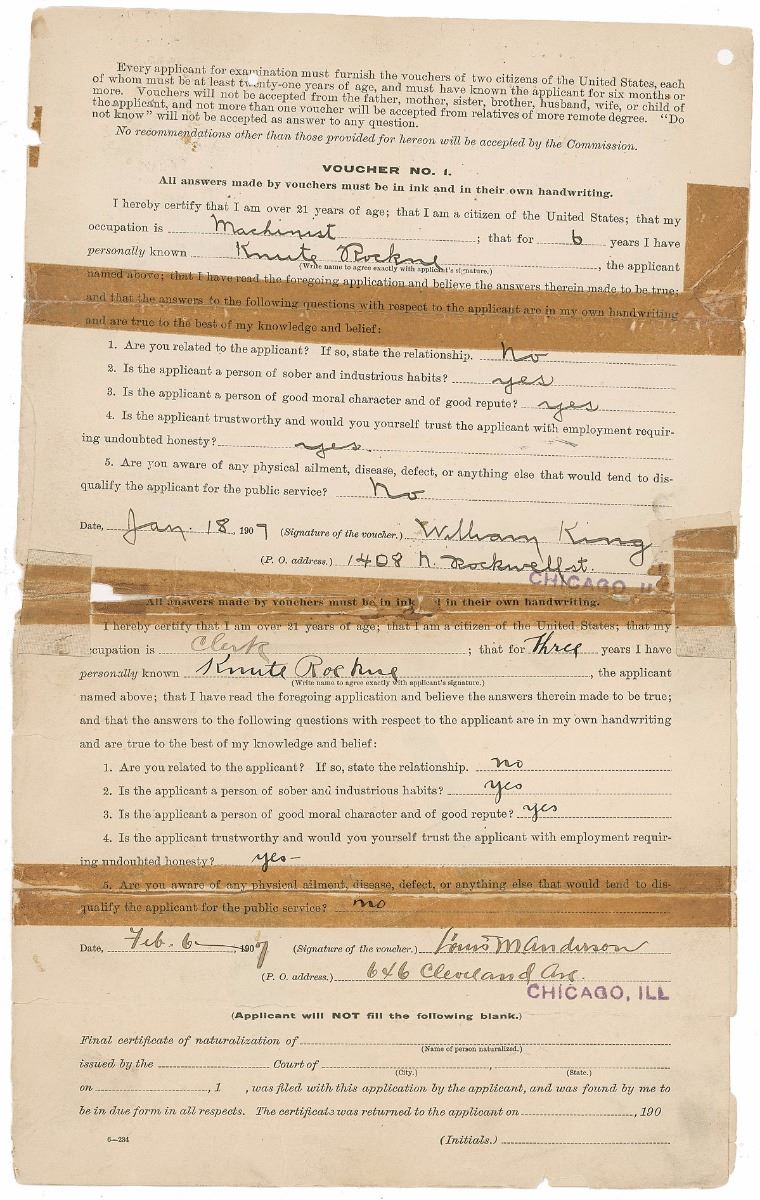 Every applicant for examination must furnish the vouchers of two citizens of the United States, each
of whom must be at least twenty-one years of age, and must have known the applicant for six months or
more. Vouchers will not be accepted from the father, mother, sister, brother, husband, wife, or child of
the applicant, and not more than one voucher will be accepted from relatives of more remote degree. "Do
not know" will not be accepted as answer to any question.
No recommendations other than those provided for hereon will be accepted by the Commission.
VOUCHER NO. 1.
All answers made by vouchers must be in ink and in their own handwriting.
I hereby certify that I am over 21 years of age; that I am a citizen of the United States; that my
occupation is Machinist ; that for 6 years I have
personally known Knute Rockne , the applicant
(Write name to agree exactly with applicant's signature.)
named above; that I have read the foregoing application and believe the answers therein made to be true;
and that the answers to the following questions with respect to the applicant are in my own handwriting
and are true to the best of my knowledge and belief:
1. Are you related to the applicant? If so, state the relationship. No
2. Is the applicant a person of sober and industrious habits? yes
3. Is the applicant a person of good moral character and of good repute? yes
4. Is the applicant trustworthy and would you yourself trust the applicant with employment requir-
ing undoubted honesty? yes.
5. Are you aware of any physical ailment, disease, defect, or anything else that would tend to dis-
qualify the applicant for the public service? No
Date, Jan. 18, 1907 (Signature of the voucher.) William King
(P. O. address.) 1408 N. Rockwell st.
CHICAGO
All answers made by vouchers must be in ink d in their own handwriting.
I hereby certify that I am over 21 years of age; that I am a citizen of the United States; that my
ccupation is Clerk ; that for three years I have
personally known Knute Rockne , the applicant
(Write name to agree exactly with applicant's signature.)
named above; that I have read the foregoing application and believe the answers therein made to be true;
and that the answers to the following questions with respect to the applicant are in my own handwriting
and are true to the best of my knowledge and belief:
1. Are you related to the applicant? If so, state the relationship. no
2. Is the applicant a person of sober and industrious habits? yes
3. Is the applicant a person of good moral character and of good repute? yes
4. Is the applicant trustworthy and would you yourself trust the applicant with employment requir-
ing undoubted honesty? yes-
5. Are you aware of any physical ailment, disease, defect, or anything else that would tend to dis-
qualify the applicant for the public service? no
Date, Feb. 6, 1907 (Signature of the voucher.) Louis M Anderson
(P. O. address.) 646 Cleveland Ave.
CHICAGO, ILL
(Applicant will NOT fill the following blank.)
Final certificate of naturalization of
(Name of person naturalized.)
issued by the Court of ,
(City.) (State.)
on , 1 , was filed with this application by the applicant, and was found by me to
be in due form in all respects. The certificate was returned to the applicant on , 190
6—234 (Initials.)